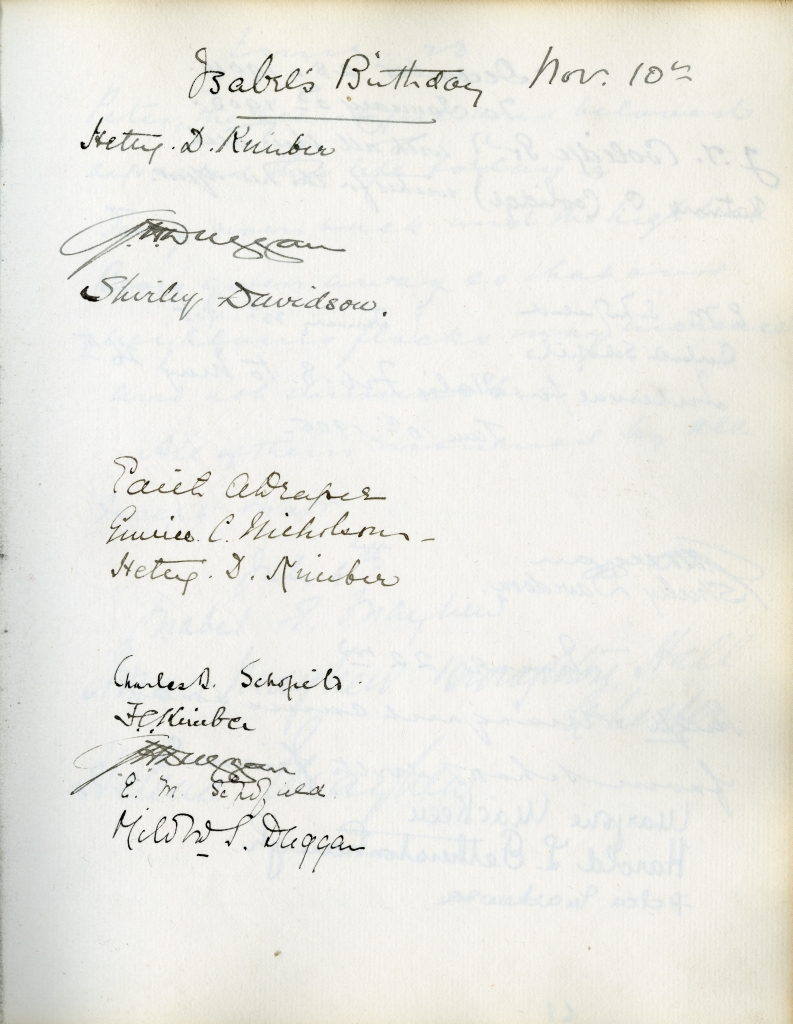 Isabel's Birthday Nov. 10th
Hetty. D. Kimber
G.H. Duggan
Shirley Davidson.
Edith A Draper
Eunice. C. Nicholson
Hetty. D. Kimber
Charles D. Schofield.
F.C. Kimber
G.H. Duggan
E. M. Schofield.
Mildrd S. Duggan